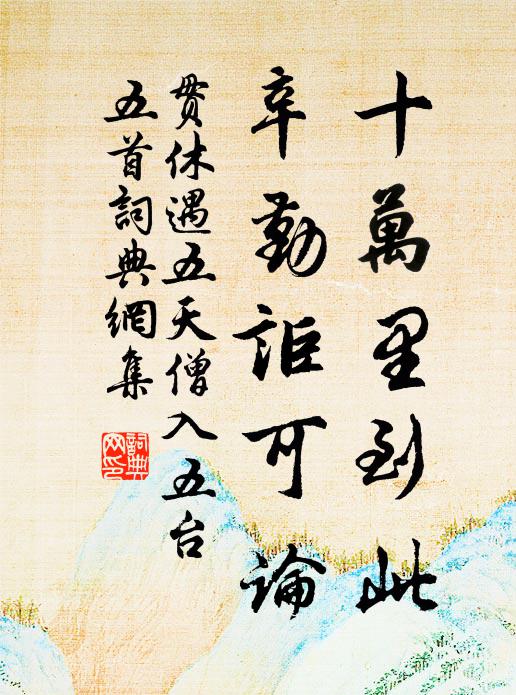 十萬里到此
辛勤詎可論
貫休遇五天僧入五台
五首詞典網集
詞典网印